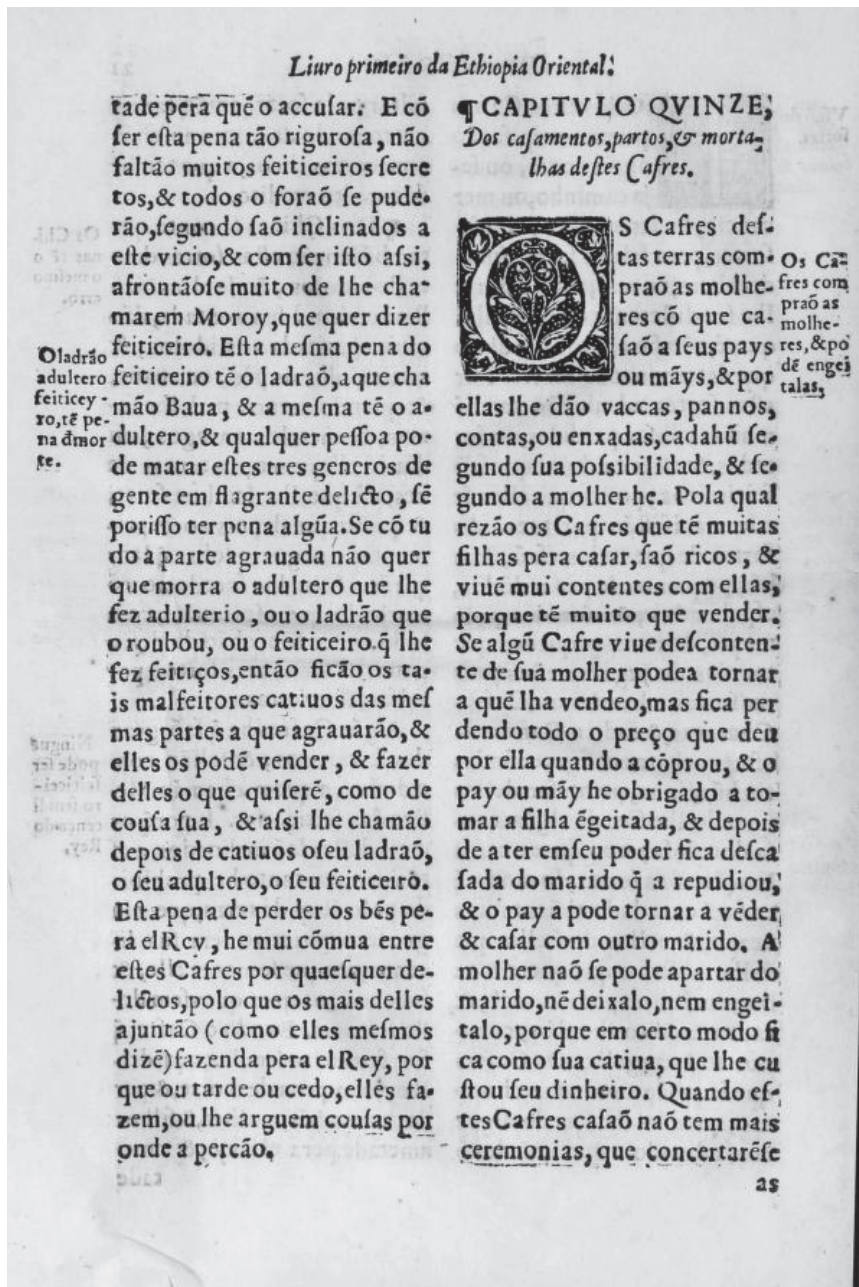 Liuro primeiro da Ethiopia Oriental.
tade pera quẽ o accuſar. E cõ
ſer eſta pena tão riguroſa, não
faltão muitos feiticeiros ſecre
tos,& todos o foraõ ſe pude-
rão,ſegundo ſaõ inclinados a
eſte vicio,& com ſer iſto aſsi,
afrontãoſe muito de lhe cha-
marem Moroy,que quer dizer
feiticeiro. Eſta meſma pena do
feiticeiro tẽ o ladraõ,aque cha
mão Baua, & a meſma tẽ o a-
dultero,& qualquer peſſoa po-
de matar eſtes tres generos de
gente em flagrante delicto, ſẽ
poriſſo ter pena algũa.Se cõ tu
do a parte agrauada não quer
que morra o adultero que lhe
fez adulterio, ou o ladrão que
o roubou, ou o feiticeiro q̃ lhe
fez feitiços,então ficão os ta-
is malfeitores catiuos das meſ
mas partes a que agrauarão,&
elles os podẽ vender, & fazer
delles o que quiſerẽ, como de
couſa ſua, & aſsi lhe chamão
depois de catiuos oſeu ladraõ,
o ſeu adultero,o ſeu feiticeiro.
Eſta pena de perder os bẽs pe-
ra el Rey, he mui cõmua entre
eſtes Cafres por quaeſquer de-
lictos,polo que os mais delles
ajuntão (como elles meſmos
dizẽ)fazenda pera el Rey, por
que ou tarde ou cedo,elles fa-
zem,ou lhe arguem couſas por
onde a percão.
O ladrão
adultero
feiticey-
ro,tẽ pe-
na d̃ mor
te.
¶CAPITVLO QVINZE,
Dos caſamentos,partos,& morta-
lhas deſtes Cafres.
OS Cafres deſ-
tas terras com-
praõ as molhe-
res cõ que ca-
ſaõ a ſeus pays
ou mãys,&por
ellas lhe dão vaccas, pannos,
contas,ou enxadas,cadahũ ſe-
gundo ſua poſsibilidade, & ſe-
gundo a molher he. Pola qual
rezão os Cafres que tẽ muitas
filhas pera caſar,ſaõ ricos, &
viuẽ mui contentes com ellas,
porque tẽ muito que vender.
Se algũ Cafre viue deſconten-
te de ſua molher podea tornar
a quẽ lha vendeo,mas fica per
dendo todo o preço que deu
por ella quando a cõprou, & o
pay ou mãy he obrigado a to-
mar a filha ẽgeitada, & depois
de a ter emſeu poder fica deſca
ſada do marido q̃ a repudiou,
& o pay a pode tornar a vẽder,
& caſar com outro marido. A
molher naõ ſe pode apartar do
marido,nẽ deixalo,nem engei-
talo,porque em certo modo fi
ca como ſua catiua, que lhe cu
ſtou ſeu dinheiro. Quando eſ-
tes Cafres caſaõ naõ tem mais
ceremonias, que concertarẽſe
as
Os Ca-
fres com
praõ as
molhe-
res,&po
dẽ engei
talas,